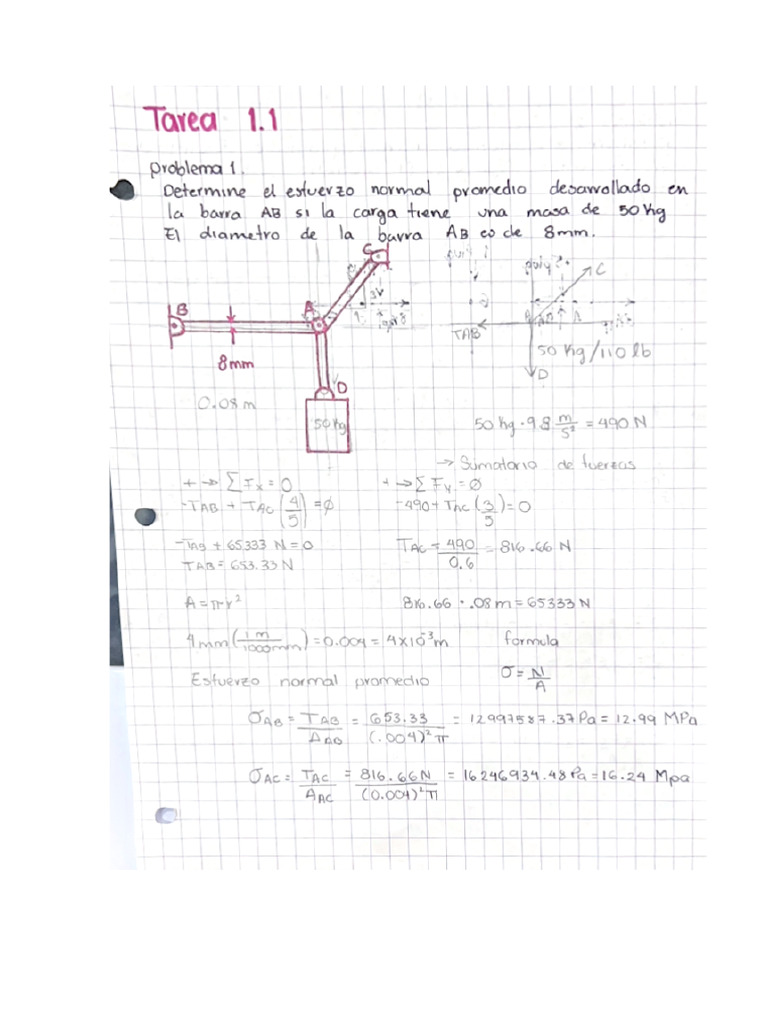 Tarea 1.1
Problema 1.
Determine el esfuerzo normal promedio desarrollado en
la barra AB si la carga tiene una masa de 50 Kg
El diametro de la barra AB es de 8mm.
C
B
A
8mm
D
0.08 m
50 Kg
C
TAB
50 Kg/110 lb
D
50 Kg · 9.8 m/s² = 490 N
→ Sumatorio de fuerzas
+ → Σ Fx = 0
+ → Σ Fy = Ø
-TAB + TAC (4/5) = Ø
-490 + TAC (3/5) = 0
-TAB + 65333 N = 0
TAC = 490/0.6 = 816.66 N
TAB = 653.33 N
A = πr²
816.66 · .08 m = 65333 N
4 mm (1 m/1000mm) = 0.004 = 4x10⁻³ m
formula
Esfuerzo normal promedio
σ = N/A
σAB = TAB/AAB = 653.33/(.004)²π = 12997587.37 Pa = 12.99 MPa
σAC = TAC/AAC = 816.66 N/(0.004)²π = 16246934.48 Pa = 16.24 Mpa